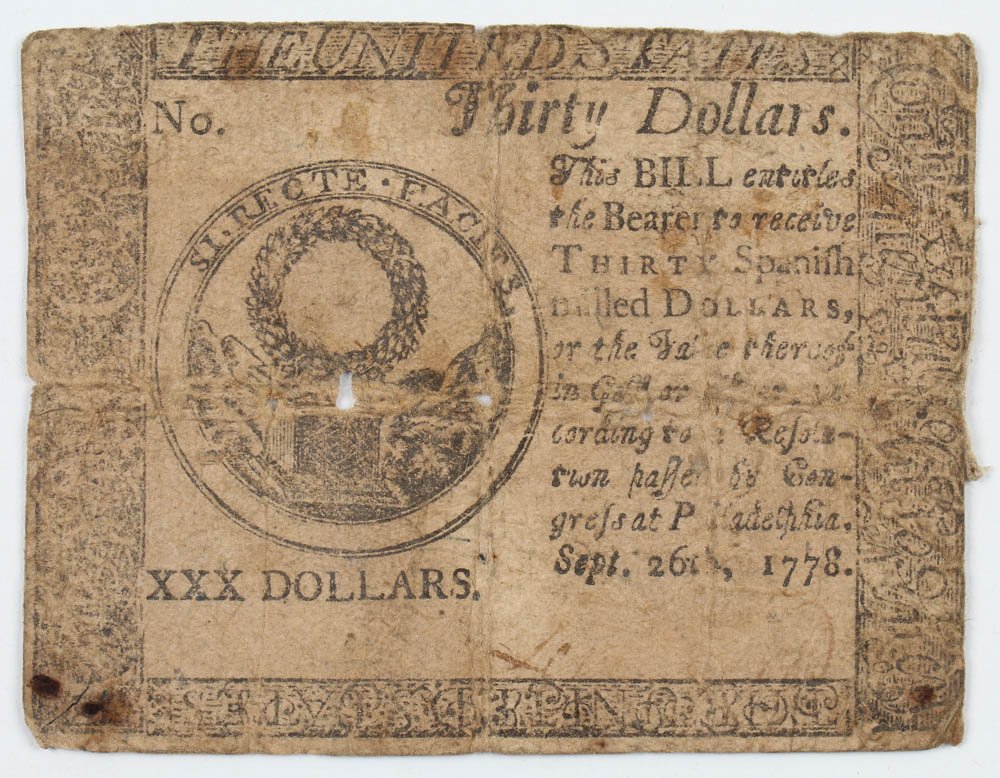 THE UNITED STATES
No. Thirty Dollars.
SI·RECTE·FACIES
This BILL entitles
the Bearer to receive
THIRTY Spaniſh
milled DOLLARS,
or the Value thereof
in Gold or
cording to a Reſolu-
tion paſſed by Con-
greſs at Philadelphia.
Sept. 26th, 1778.
XXX DOLLARS.